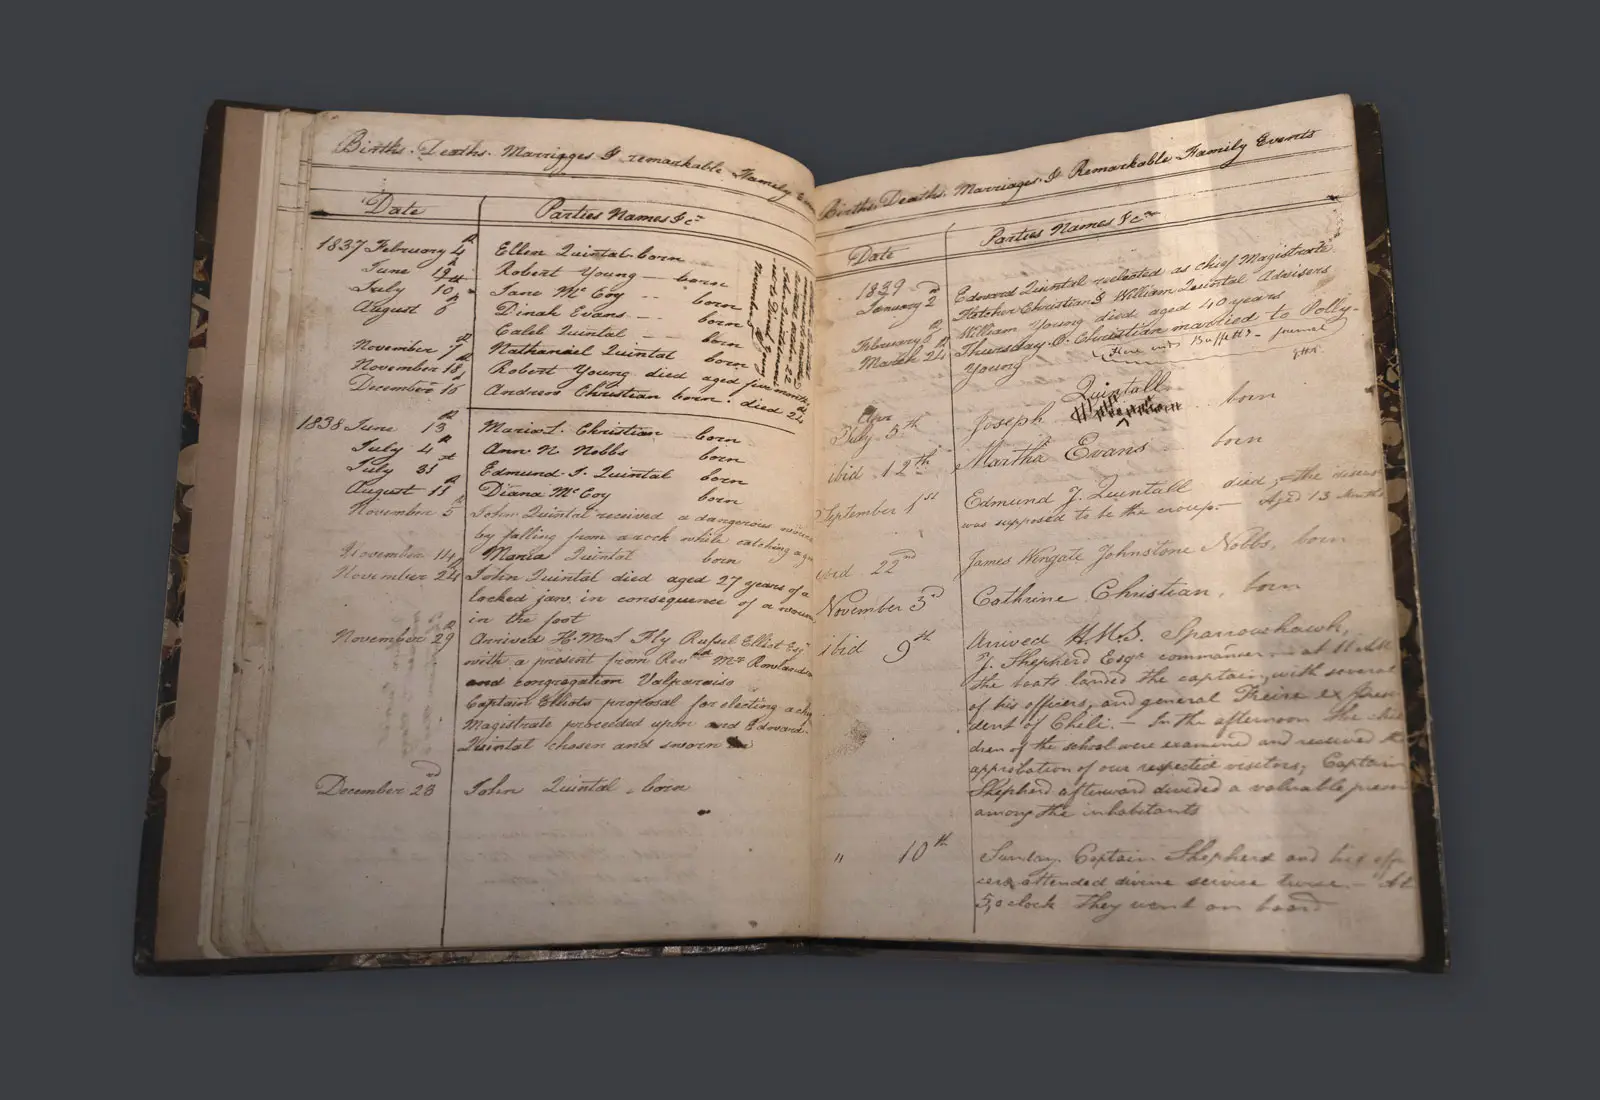 Births. Deaths. Marriages & remarkable Family
Date Parties Names &c
1837 February 4th Ellen Quintal born
June 19th Robert Young born
July 10th Jane McCoy born
August 6th Dinah Evans born
Caleb Quintal born
November 7th Nathaniel Quintal born
November 18th Robert Young died aged five months
December 15th Andrew Christian born. died 24th
November
1838 June 13th Maria L. Christian born
July 4th Ann N. Nobbs born
July 31st Edmund J. Quintal born
August 11th Diana McCoy born
November 5th John Quintal received a dangerous
by falling from a rock while catching a
November 14th Maria Quintal born
November 24 John Quintal died aged 27 years of a
locked jaw in consequence of a
in the foot
November 29th Arrived H.M.S Fly Russel Elliot Esqr
with a present from Revnd Mr Rowlandso
and congregation Valparaiso
Captain Elliots proposal for electing a
Magistrate proceeded upon and Edward
Quintal chosen and sworn
December 23rd John Quintal. born
Births. Deaths. Marriages. & Remarkable Family Events
Date Parties Names &c
1839
January 2nd Edward Quintal reelected as chief Magistrate
Fletcher Christian & William Quintal Advisers
February 6th William Young died aged 40 years
March 24th Thursday O. Christian married to Polly
Young Here ends Buffett's journal
Quintall
July 5th Joseph born
ibid 12th Martha Evans born
September 1st Edmund J. Quintall died the
was supposed to be the croup. Aged 13 Months
ibid 22nd James Wingate Johnstone Nobbs, born
November 3d Cathrine Christian, born
ibid 9th Arrived H.M.S. Sparrowhawk,
J. Shepherd Esqr commander at 11 AM
the boats landed the captain, with several
of his officers, and general Freire ex presi
dent of Cheli. - In the afternoon the chil
dren of the school were examined and received the
approbation of our respected visitors; Captain
Shepherd afterward divided a valuable
among the inhabitants
" 10th Sunday Captain Shepherd and his offi
cers attended divine service twice. - At
5, o clock they went on board